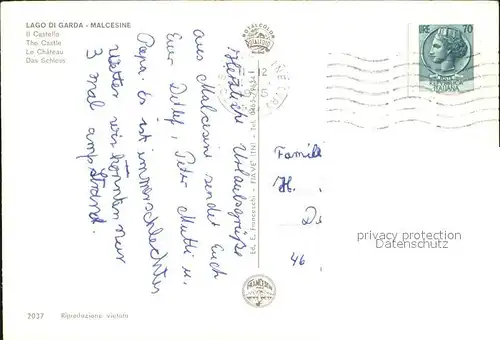 LAGO DI GARDA - MALCESINE
Il Castello
The Castle
Le Château
Das Schloss
Herzliche Urlaubsgrüße
aus Malcesine sendet Euch
Euer Detlef, Peter Mutti u.
Papa. Es ist immer schlechtes
Wetter wir konnten nur
3 mal am Strand.
ROTALCOLOR
Ed. E. Franceschi - FIAVÈ (TN) - Tel.
LIRE 70
ITALIANA
Famili
H.
D
46
privacy protection
Datenschutz
2037 Riproduzione vietata